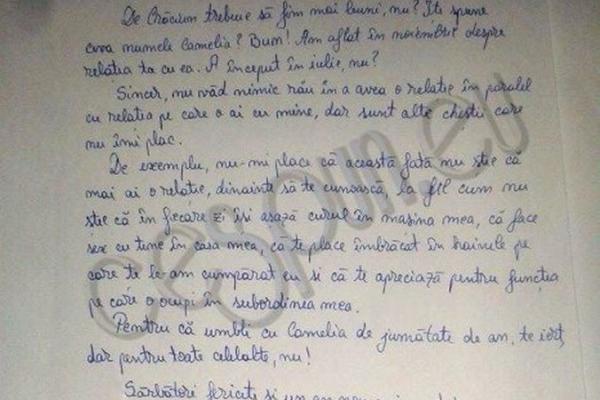 De Crăciun trebuie să fim mai buni, nu? Îți spune
ceva numele Camelia? Bun! Am aflat în noiembrie despre
relația ta cu ea. A început în iulie, nu?
Sincer, nu văd nimic rău în a avea o relație în paralel
cu relația pe care o ai cu mine, dar sunt alte chestii care
nu îmi plac.
De exemplu, nu-mi place că această fată nu știe că
mai ai o relație, dinainte să te cunoască, la fel cum nu
știe că în fiecare zi își așază curul în mașina mea, că face
sex cu tine în casa mea, că te place îmbrăcat în hainele pe
care ți le-am cumpărat eu și că te apreciază pentru funcția
pe care o ocupi în subordinea mea.
Pentru că umbli cu Camelia de jumătate de an, te iert,
dar pentru toate celelalte, nu!
Sărbători fericite și un an nou
cespun.eu